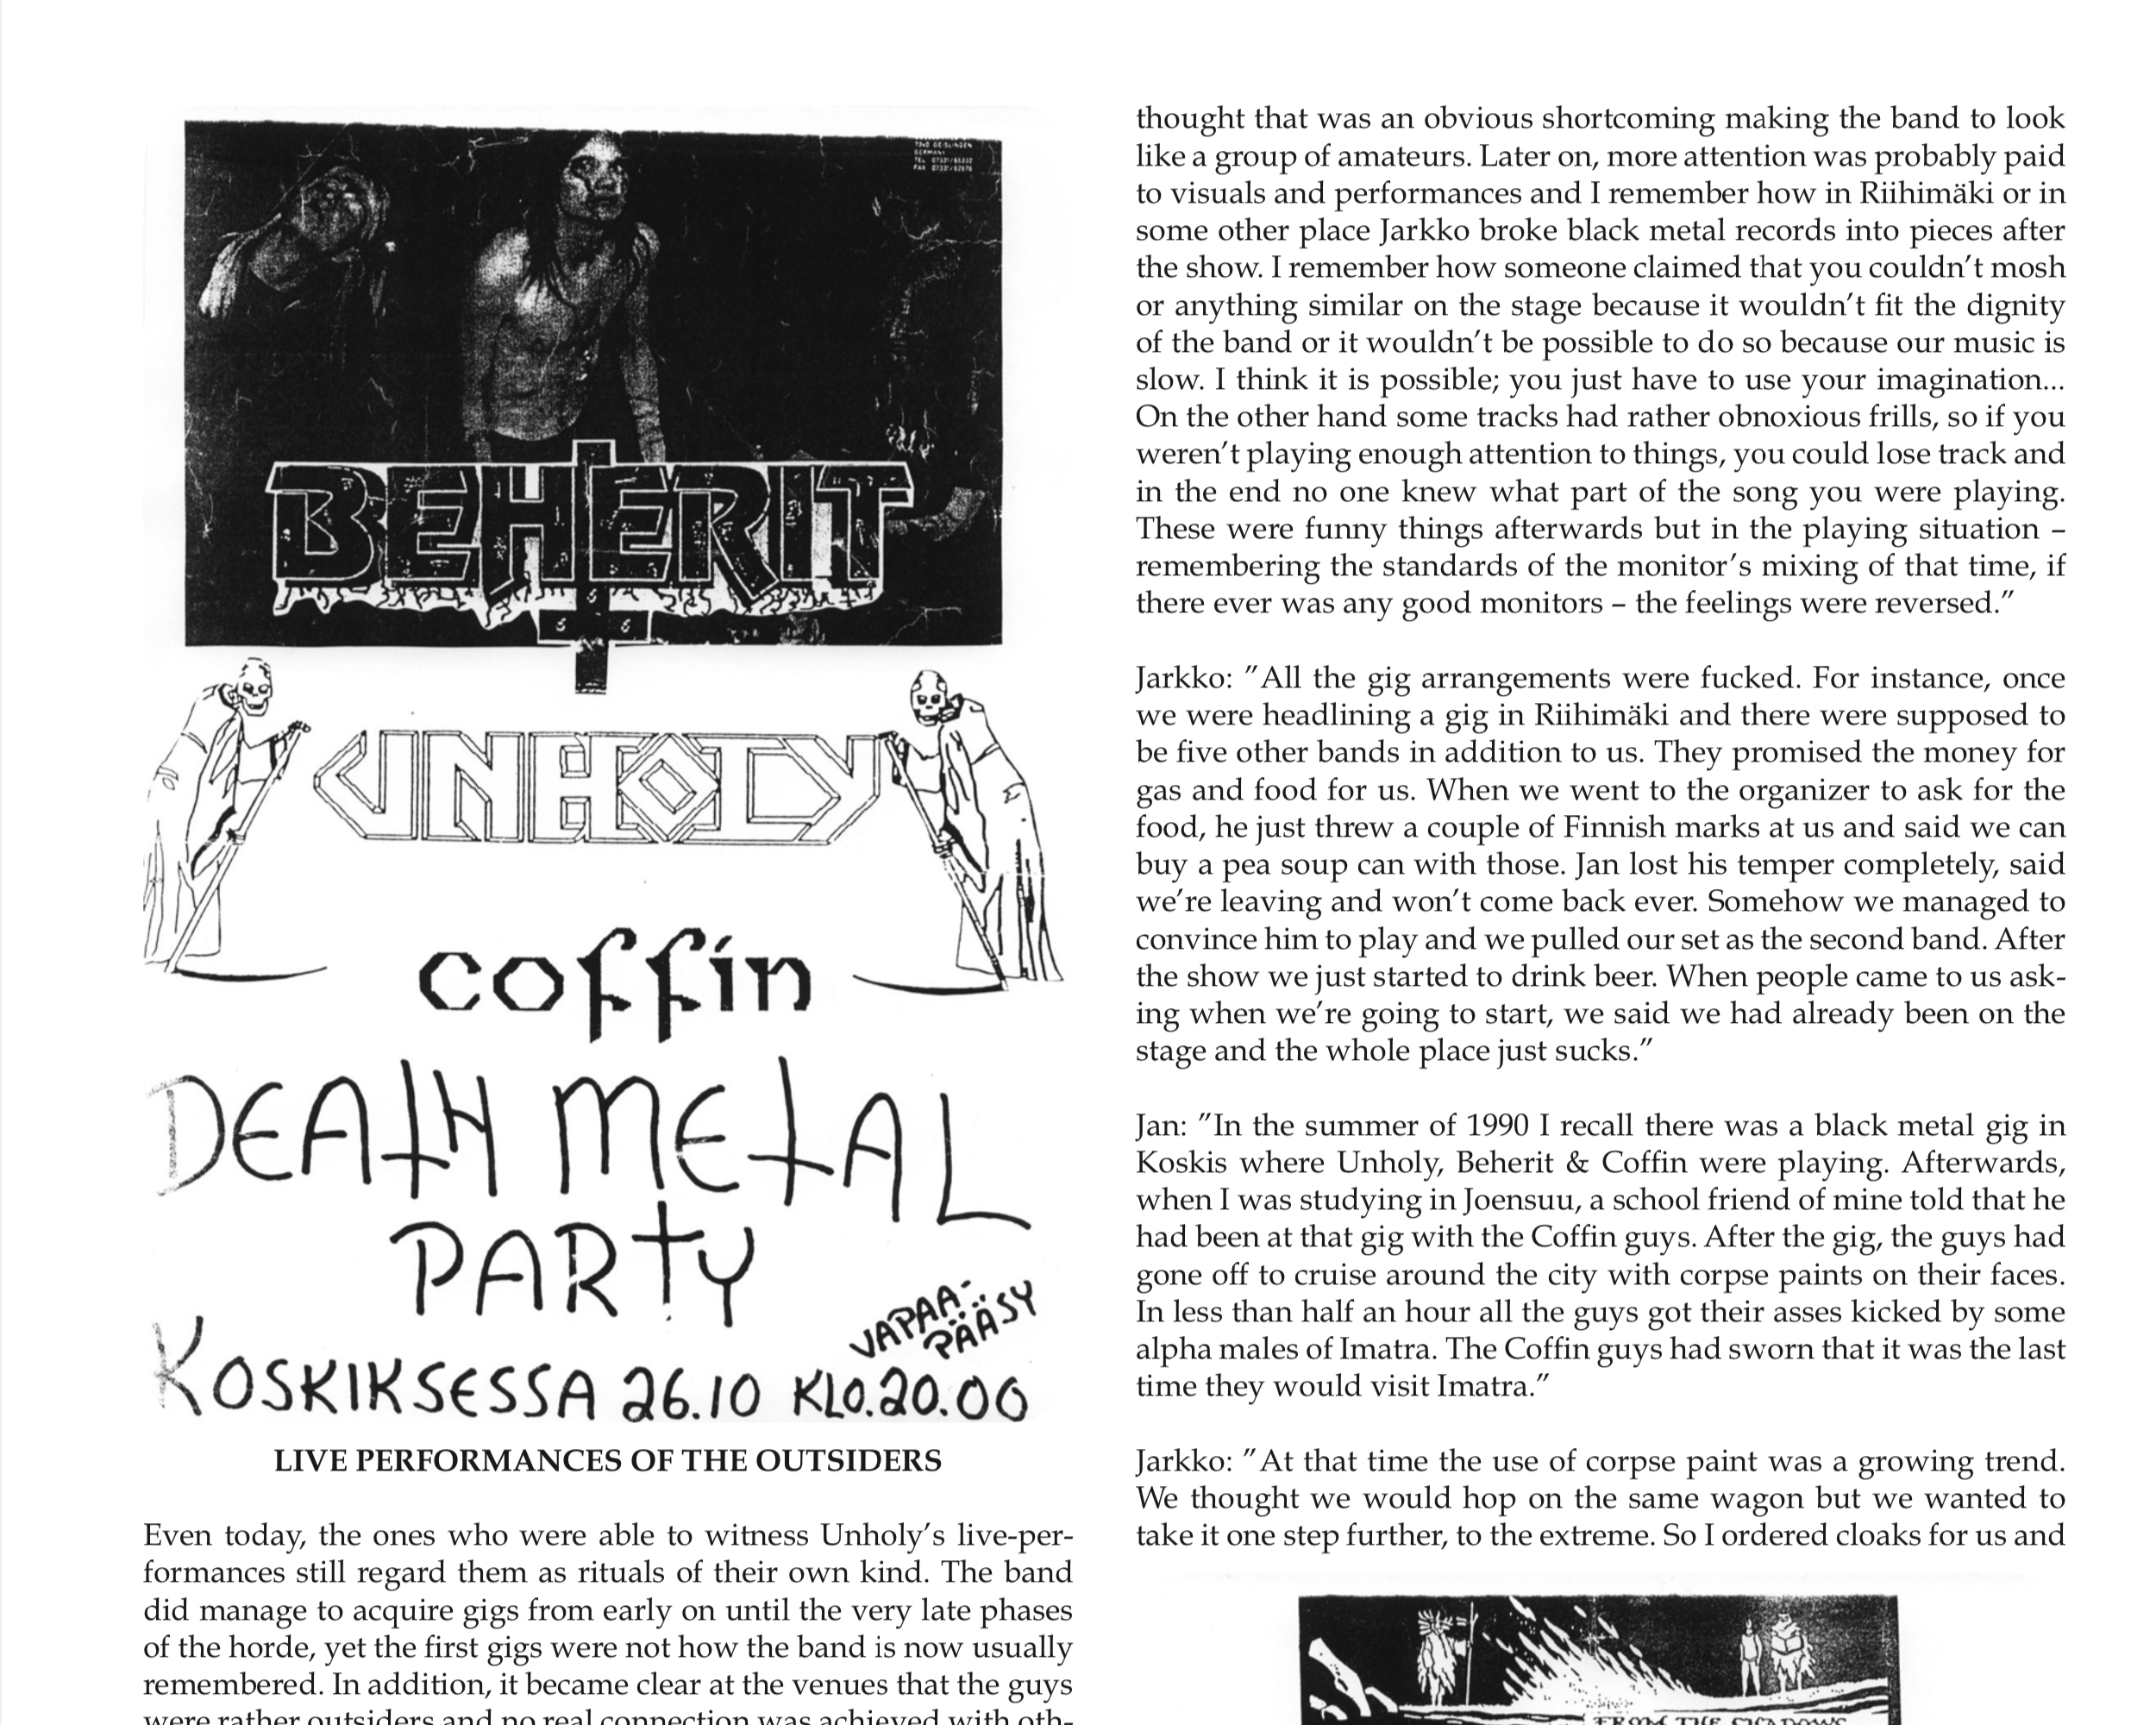 7340 GEISLINGEN
GERMANY
BEHERIT
6
6 6
UNHOLY
coffin
DEATH METAL
PARTY
VAPAA-
PÄÄSY
KOSKIKSESSA 26.10 KLO.20.00
LIVE PERFORMANCES OF THE OUTSIDERS
Even today, the ones who were able to witness Unholy’s live-per-
formances still regard them as rituals of their own kind. The band
did manage to acquire gigs from early on until the very late phases
of the horde, yet the first gigs were not how the band is now usually
remembered. In addition, it became clear at the venues that the guys
were rather outsiders and no real connection was achieved with oth-
thought that was an obvious shortcoming making the band to look
like a group of amateurs. Later on, more attention was probably paid
to visuals and performances and I remember how in Riihimäki or in
some other place Jarkko broke black metal records into pieces after
the show. I remember how someone claimed that you couldn’t mosh
or anything similar on the stage because it wouldn’t fit the dignity
of the band or it wouldn’t be possible to do so because our music is
slow. I think it is possible; you just have to use your imagination...
On the other hand some tracks had rather obnoxious frills, so if you
weren’t playing enough attention to things, you could lose track and
in the end no one knew what part of the song you were playing.
These were funny things afterwards but in the playing situation –
remembering the standards of the monitor’s mixing of that time, if
there ever was any good monitors – the feelings were reversed.”
Jarkko: ”All the gig arrangements were fucked. For instance, once
we were headlining a gig in Riihimäki and there were supposed to
be five other bands in addition to us. They promised the money for
gas and food for us. When we went to the organizer to ask for the
food, he just threw a couple of Finnish marks at us and said we can
buy a pea soup can with those. Jan lost his temper completely, said
we’re leaving and won’t come back ever. Somehow we managed to
convince him to play and we pulled our set as the second band. After
the show we just started to drink beer. When people came to us ask-
ing when we’re going to start, we said we had already been on the
stage and the whole place just sucks.”
Jan: ”In the summer of 1990 I recall there was a black metal gig in
Koskis where Unholy, Beherit & Coffin were playing. Afterwards,
when I was studying in Joensuu, a school friend of mine told that he
had been at that gig with the Coffin guys. After the gig, the guys had
gone off to cruise around the city with corpse paints on their faces.
In less than half an hour all the guys got their asses kicked by some
alpha males of Imatra. The Coffin guys had sworn that it was the last
time they would visit Imatra.”
Jarkko: ”At that time the use of corpse paint was a growing trend.
We thought we would hop on the same wagon but we wanted to
take it one step further, to the extreme. So I ordered cloaks for us and
FROM THE SHADOWS